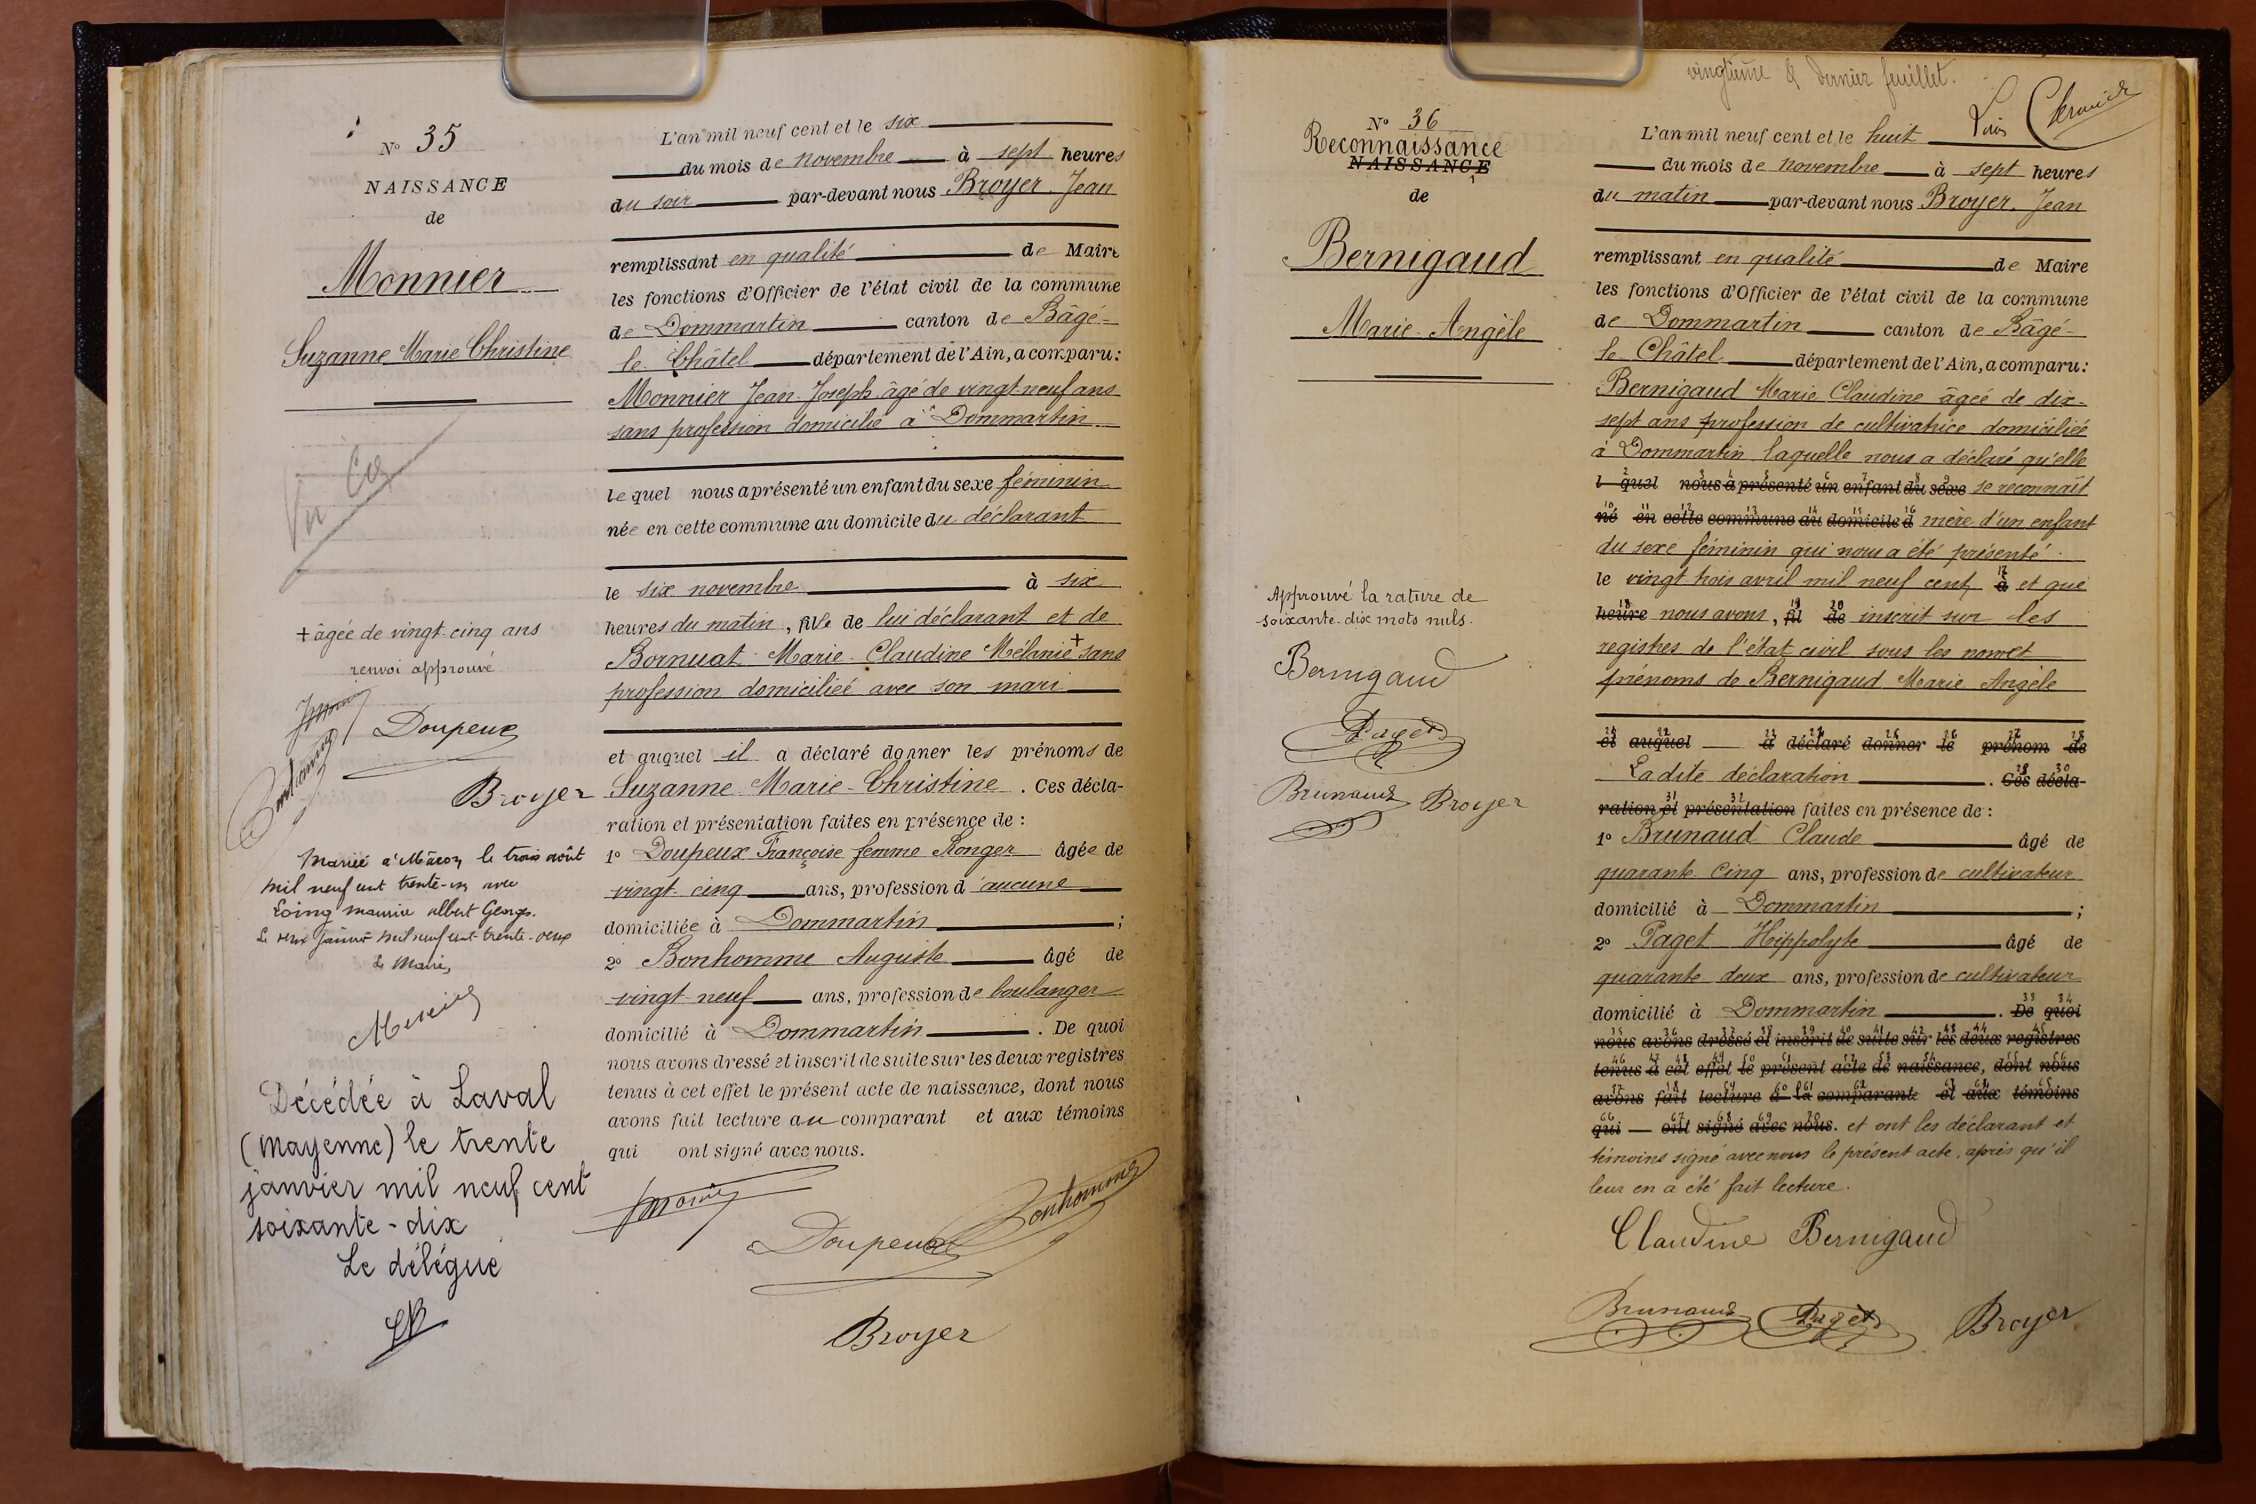 N° 35
NAISSANCE
de
Monnier
Suzanne Marie Christine
Vu
+ âgée de vingt-cinq ans
renvoi approuvé
Doupeux
Bonhomme
Broyer
Mariée à Mâcon le trois août
mil neuf cent trente-un avec
Loing Maurice Albert Georges.
Le deux janvier mil neuf cent trente-deux
Le Maire,
Décédée à Laval
(Mayenne) le trente
janvier mil neuf cent
soixante-dix
Le délégué
L'an mil neuf cent et le six
du mois de novembre à sept heures
du soir par-devant nous Broyer Jean
remplissant en qualité de Maire
les fonctions d'Officier de l'état civil de la commune
de Dommartin canton de Bâgé-
le Châtel département de l'Ain, a comparu:
Monnier Jean-Joseph âgé de vingt-neuf ans
sans profession domicilié à Dommartin
lequel nous a présenté un enfant du sexe féminin
née en cette commune au domicile du déclarant
le six novembre à six
heures du matin, fille de lui déclarant et de
Bornuat Marie-Claudine Mélanie + sans
profession domiciliée avec son mari
et auquel il a déclaré donner les prénoms de
Suzanne Marie-Christine. Ces décla-
ration et présentation faites en présence de :
1° Doupeux Françoise femme Ronger âgée de
vingt-cinq ans, profession d'aucune
domiciliée à Dommartin ;
2° Bonhomme Auguste âgé de
vingt-neuf ans, profession de boulanger
domicilié à Dommartin. De quoi
nous avons dressé et inscrit de suite sur les deux registres
tenus à cet effet le présent acte de naissance, dont nous
avons fait lecture au comparant et aux témoins
qui ont signé avec nous.
Bonhomme
Doupeux
Broyer
vingtième & dernier feuillet.
N° 36
Reconnaissance
NAISSANCE
de
Bernigaud
Marie-Angèle
Approuvé la rature de
soixante-dix mots nuls.
Bernigaud
Paget
Brunaud Broyer
L'an mil neuf cent et le huit
du mois de novembre à sept heures
du matin par-devant nous Broyer Jean
remplissant en qualité de Maire
les fonctions d'Officier de l'état civil de la commune
de Dommartin canton de Bâgé-
le Châtel département de l'Ain, a comparu:
Bernigaud Marie Claudine âgée de dix-
sept ans profession de cultivatrice domiciliée
à Dommartin laquelle nous a déclaré qu'elle
2 3 4 5 6 7 8 9
l quel nous a présenté un enfant du sexe se reconnaît
10 11 12 13 14 15 16
né en cette commune au domicile d mère d'un enfant
du sexe féminin qui nous a été présenté
le vingt trois avril mil neuf cent, 17 à et que
18 heure nous avons, 19 fil 20 de inscrit sur les
registres de l'état civil sous les nom et
prénoms de Bernigaud Marie Angèle
21 22 23 24 25 26 27 28
et auquel a déclaré donner le prénom de
Ladite déclaration . 29 30 Ces décla-
31 32
ration et présentation faites en présence de :
1° Brunaud Claude âgé de
quarante-cinq ans, profession de cultivateur
domicilié à Dommartin ;
2° Paget Hippolyte âgé de
quarante deux ans, profession de cultivateur
33 34
domicilié à Dommartin. De quoi
35 36 37 38 39 40 41 42 43 44 45
nous avons dressé et inscrit de suite sur les deux registres
46 47 48 49 50 51 52 53 54 55 56
tenus à cet effet le présent acte de naissance, dont nous
57 58 59 60 61 62 63 64 65
avons fait lecture à la comparante et aux témoins
66 67 68 69 70
qui ont signé avec nous. et ont les déclarant et
témoins signé avec nous le présent acte, après qu'il
leur en a été fait lecture.
Claudine Bernigaud
Brunaud Paget Broyer